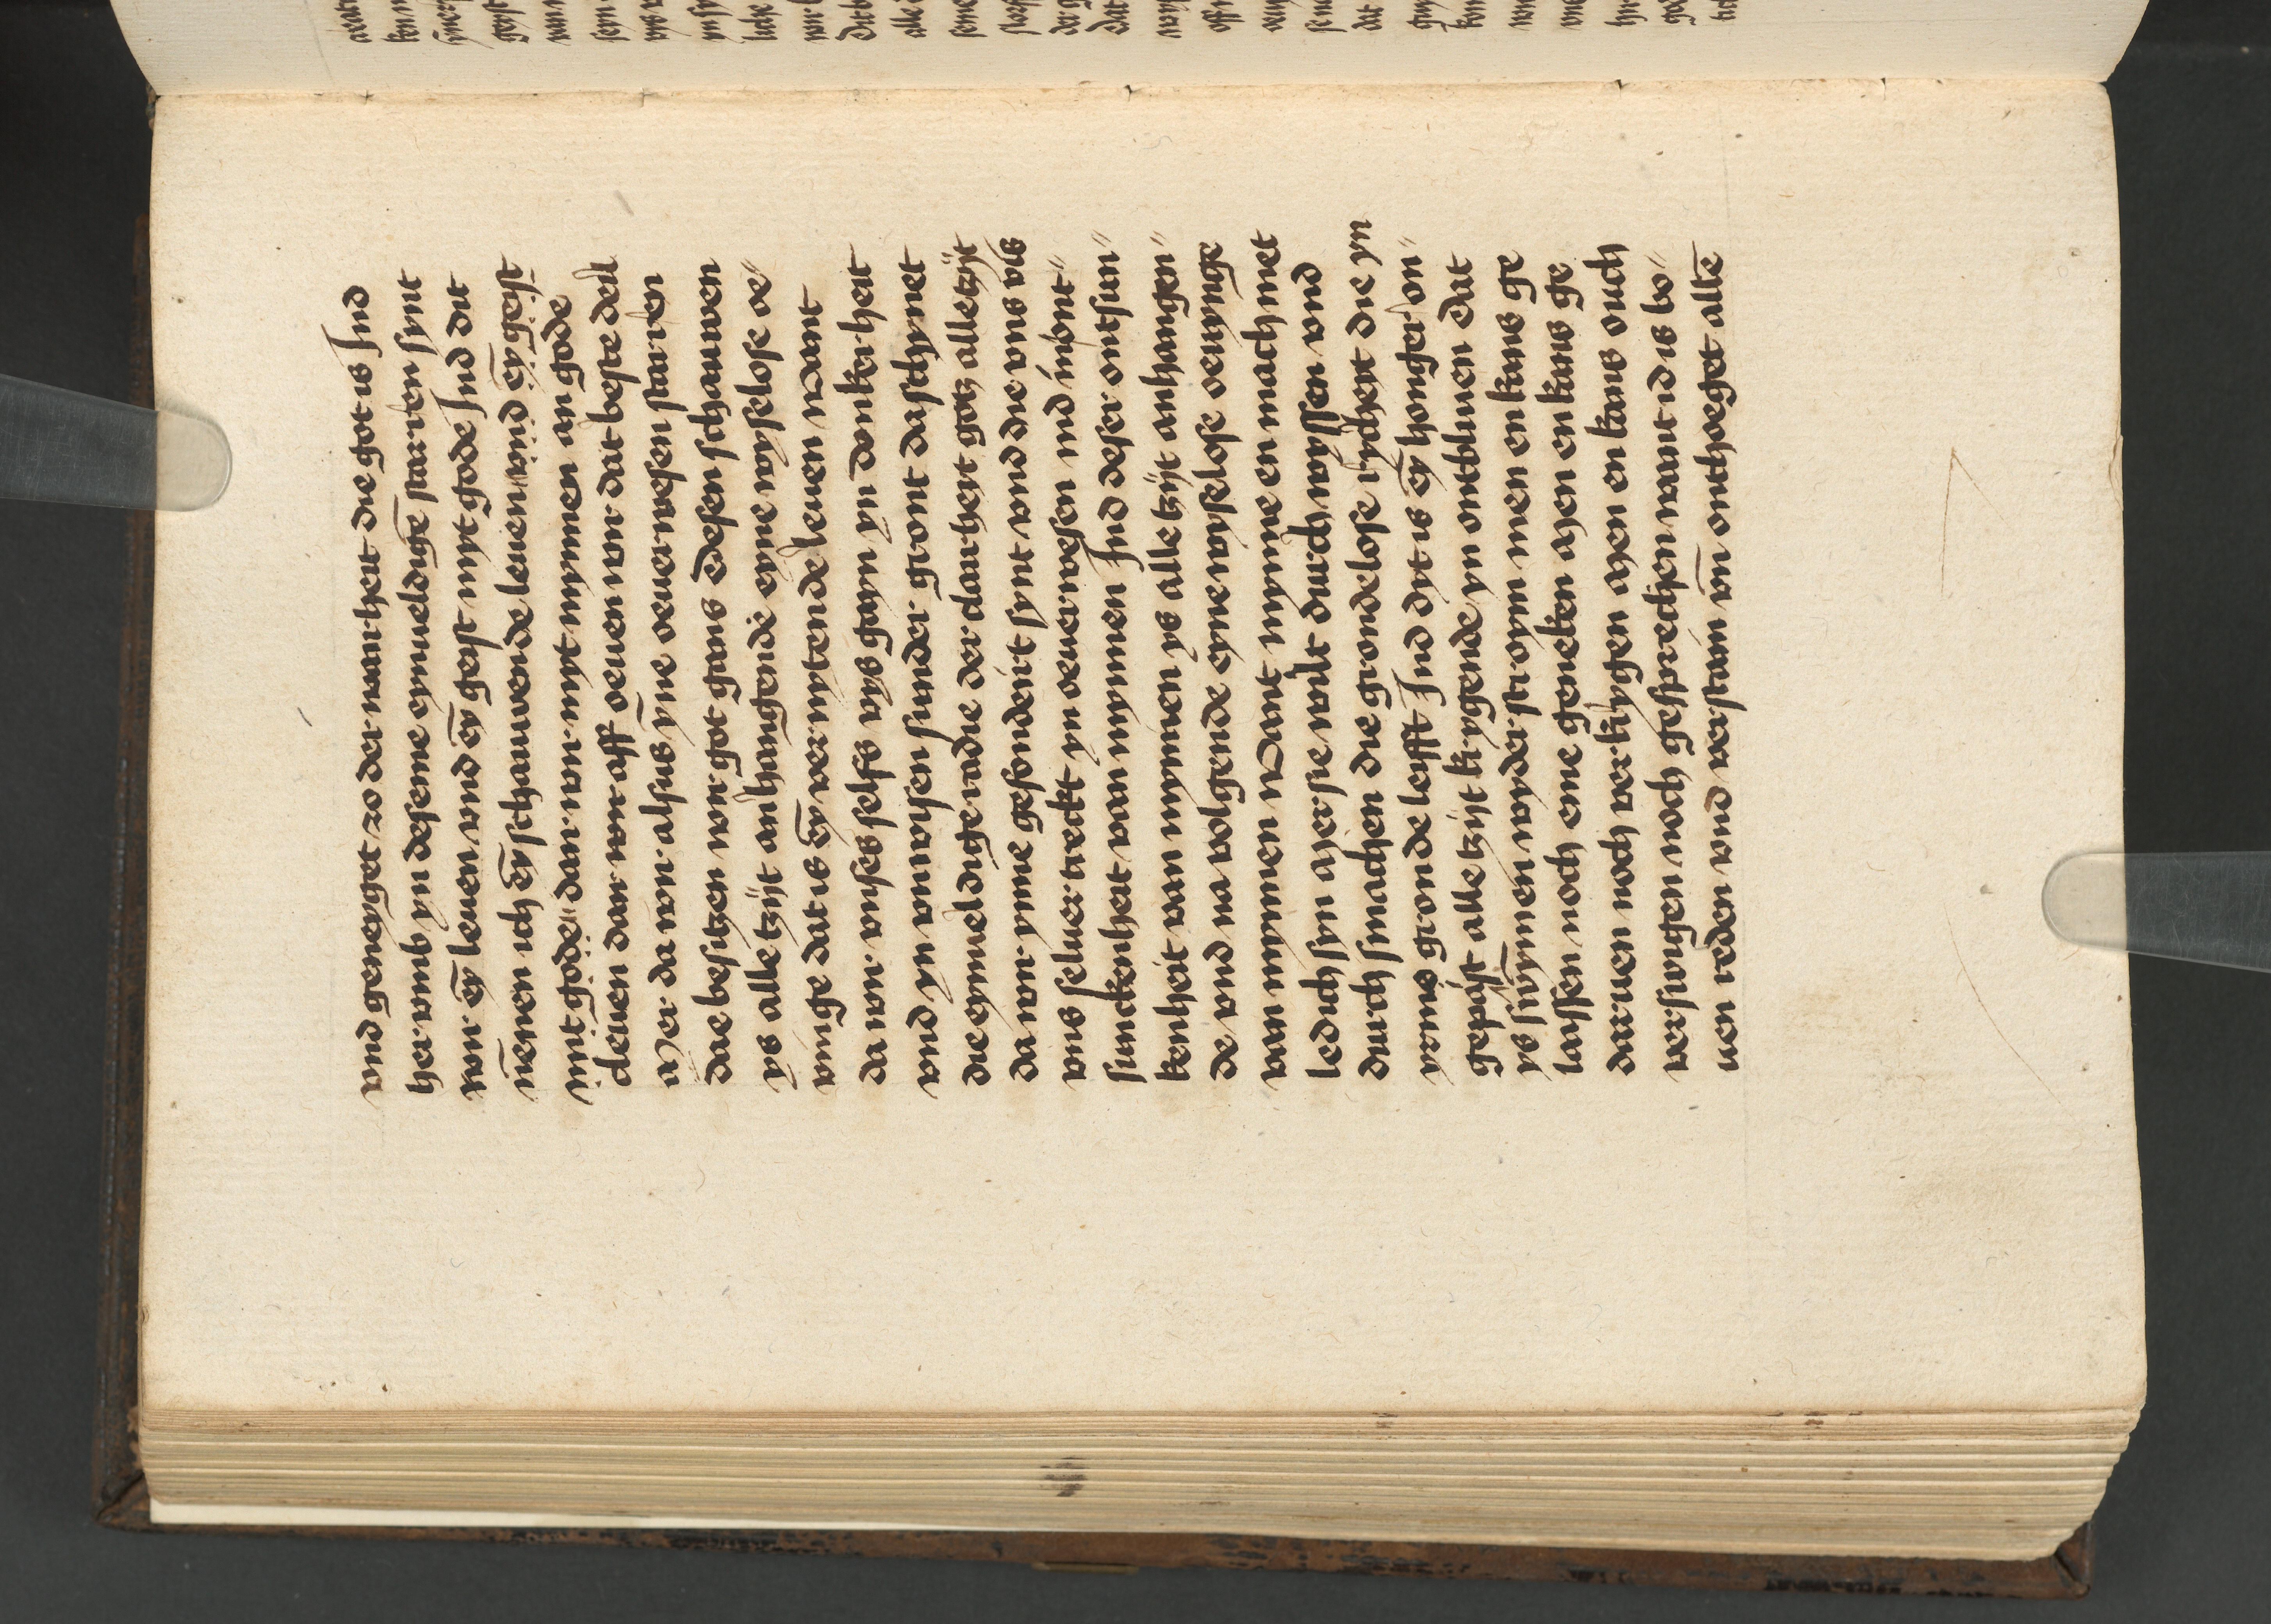 vnd geneyget zo der warheit die got is Jnd
her vmb yn deseme eynueldigē starren synt
wir eȳ leuen vnd eȳ geist myt gode Jnd dit
nēnen ich eȳ schauwende leuen vnd eȳ geist
mit gode dar wir myt mynnen an gode
cleuen dar wir aff oeuen wir dat beste deil
Mer da wir alsus ȳne oeuerwesen starren
dae besitzen wir got gans Desen schauwen
ys alle tzijt anhangende eyne wyselose oe
unge dat is eȳ vernytende leuen Want
da wir vnses selfs vys gayn yn donkerheit
vnd yn vnwisen sunder gront da schynet
die eynueldige radie der clarheyt gotz alle tzijt
da wir ynne gefondeirt synt vnd die vns vis
vns seluer treckt yn oeuerwesen ind in ont
sunckenheit van mynnen Jnd deser ontsun
kenheit van mynnen ys alle tzijt anhangen
de vnd na volgende eyne wyselose oeuynge
van mynnen Want mynne en mach niet
ledich syn Mer sie wilt durch wyssen vnd
durch smachen die grondelose rycheyt die yn
yrme gronde leyfft Jnd dyt is eȳ honger on
gepaist alle tzijt krygende yn ontbliuen Dat
ys swȳmen wyder stroym men en kans ge
lassen noch eme geneken Men en kans ge
daruen noch verkrygen Men en kans ouch
verswigen noch gesprechen want id is bo
uen reden vnd verstain vn̄ onthoeget allē